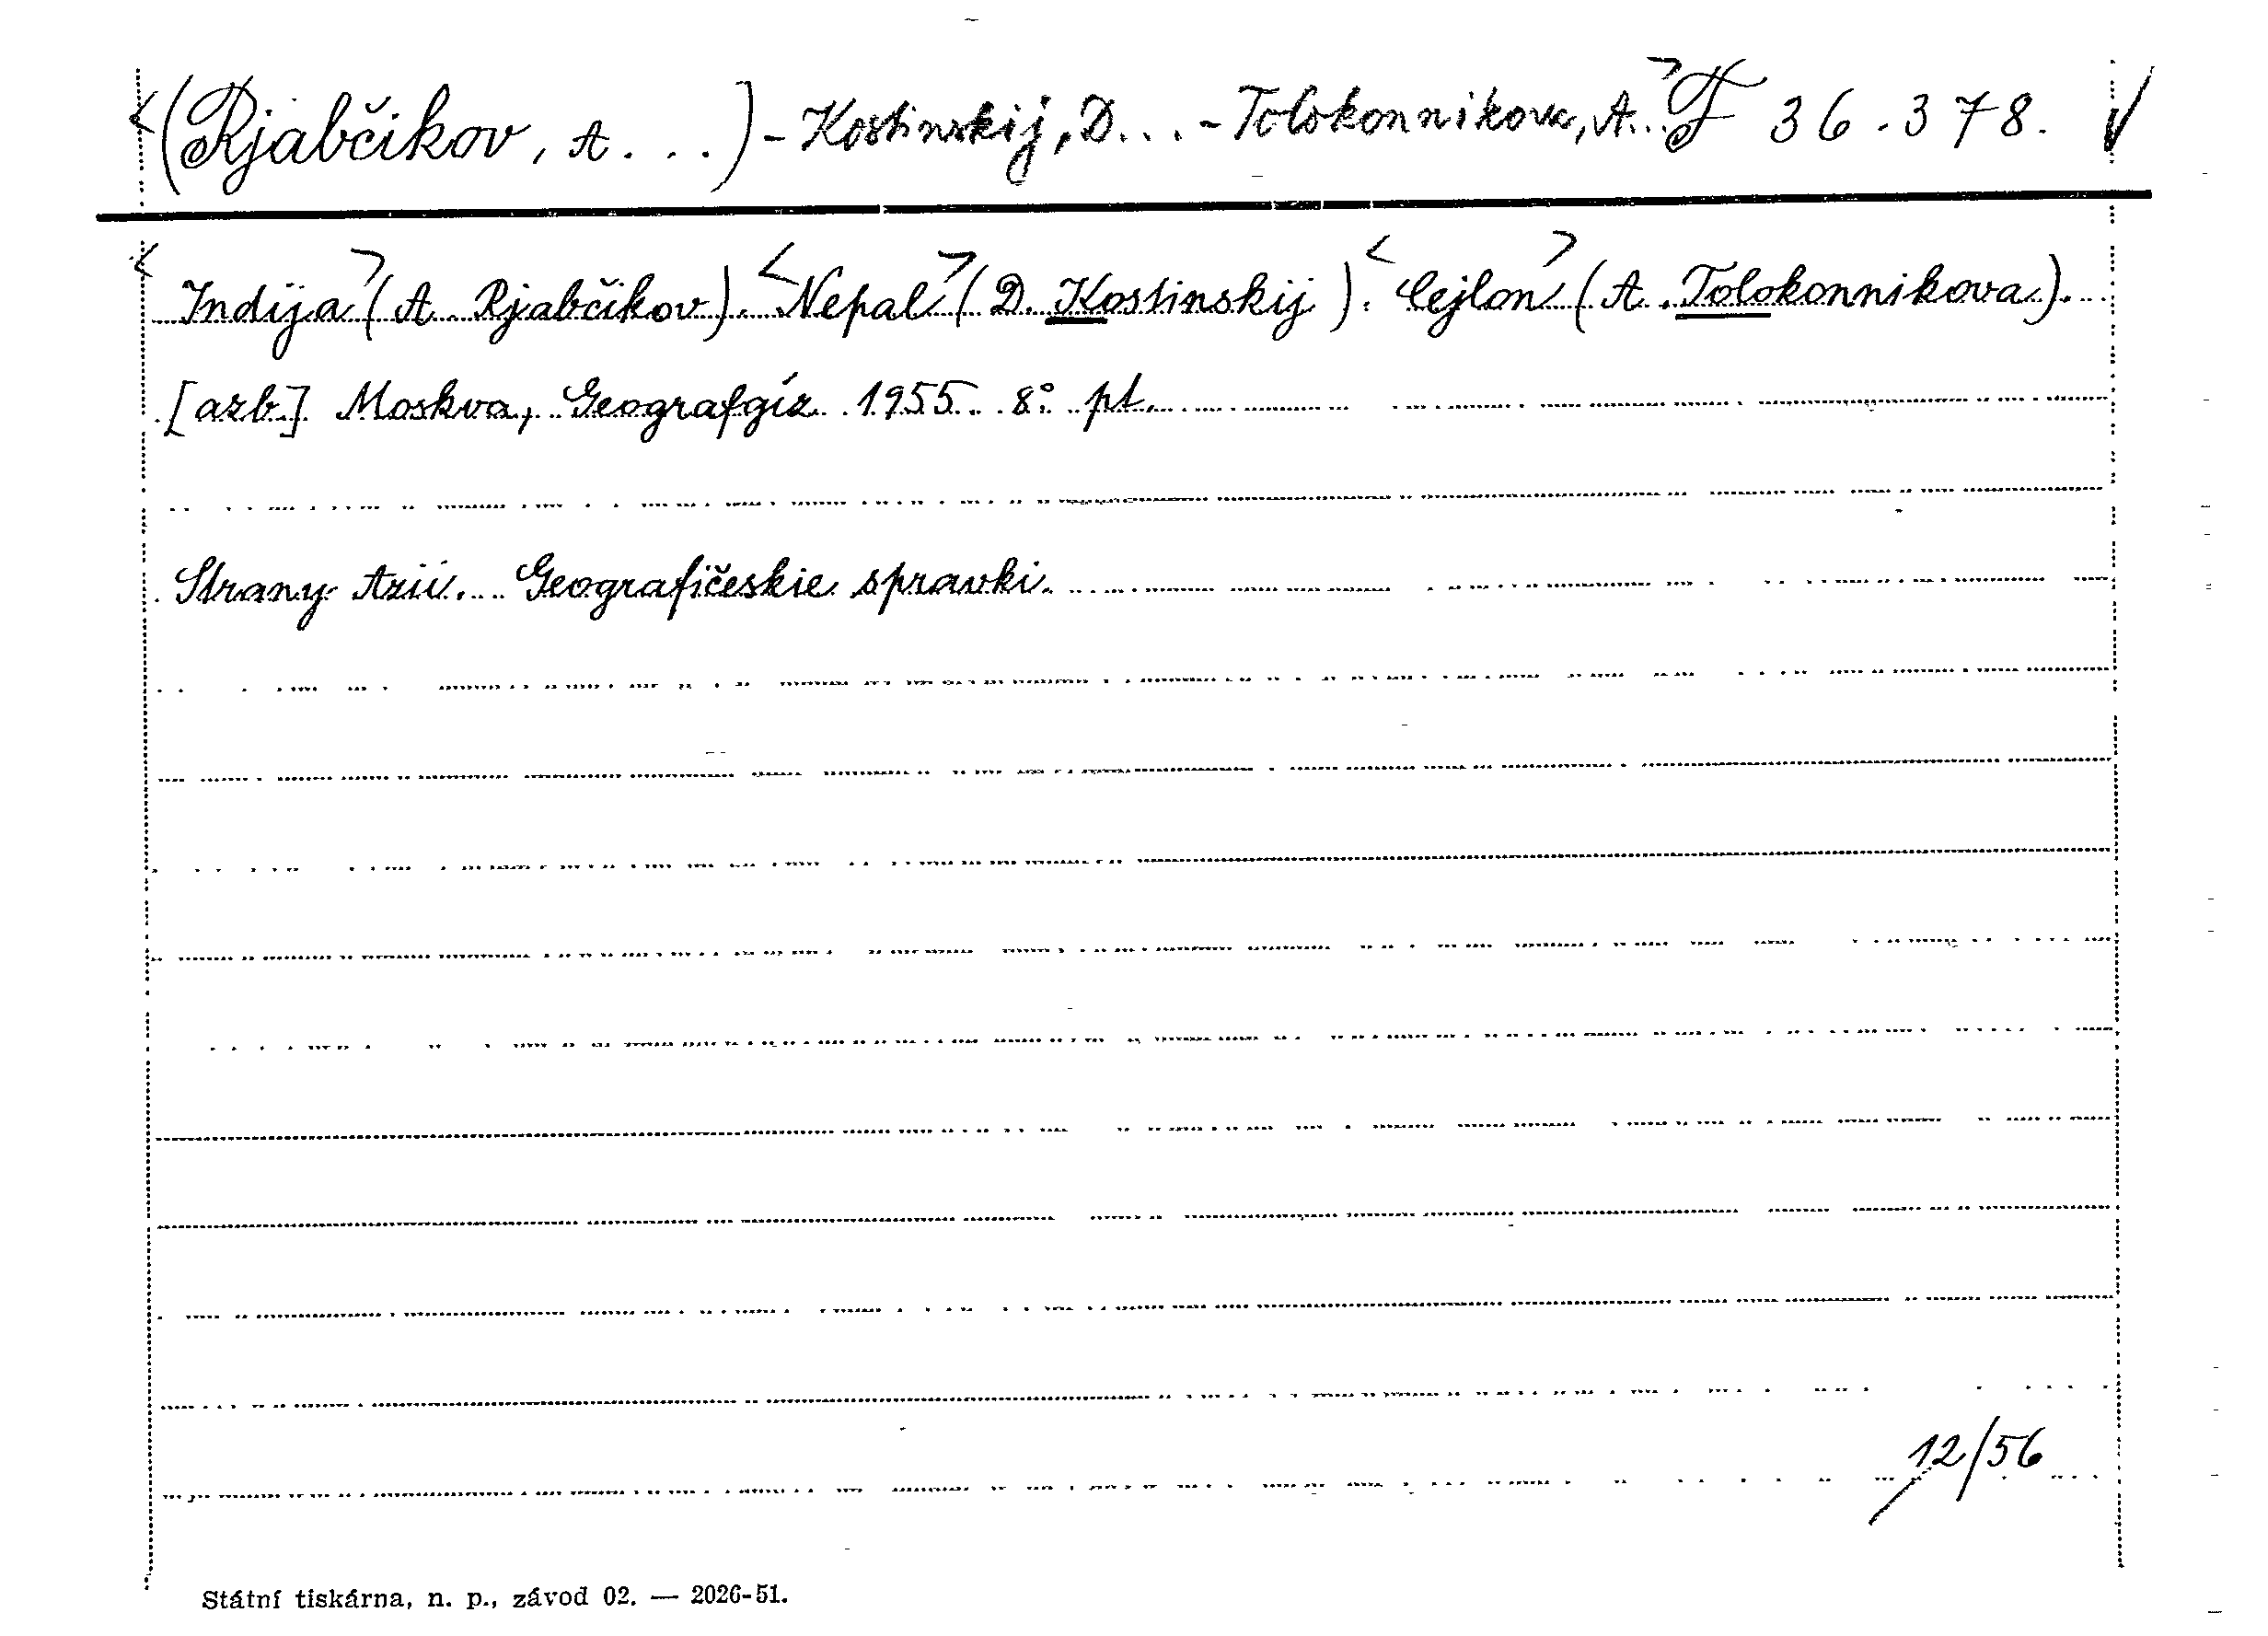 <(Rjabčikov, A...) - Kostinskij, D... - Tolokonnikova, A..> F 36.378. √
<Indija> (A. Rjabčikov). <Nepal> (D. Kostinskij). <Cejlon> (A. Tolokonnikova).
[azb.] Moskva, Geografgiz 1955. 8° pt.
Strany Azii. Geografičeskie spravki.
12/56
Státní tiskárna, n. p., závod 02. — 2026-51.